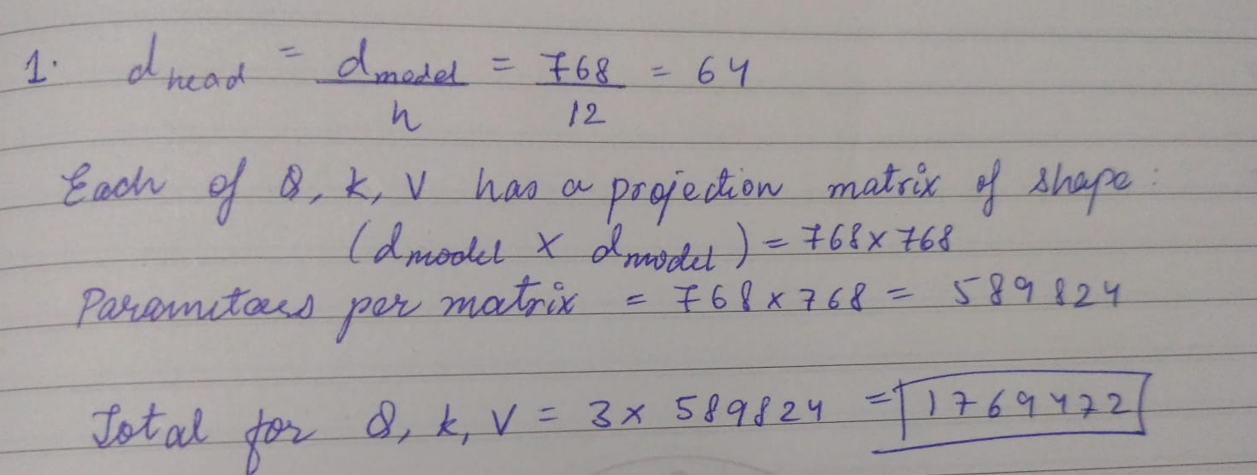 1. d head = d model = 768 = 64
h 12
Each of Q, K, V has a projection matrix of shape :
(d model X d model) = 768 x 768
Paramitaes per matrix = 768 x 768 = 589824
Total for Q, K, V = 3 x 589824 = 1769472